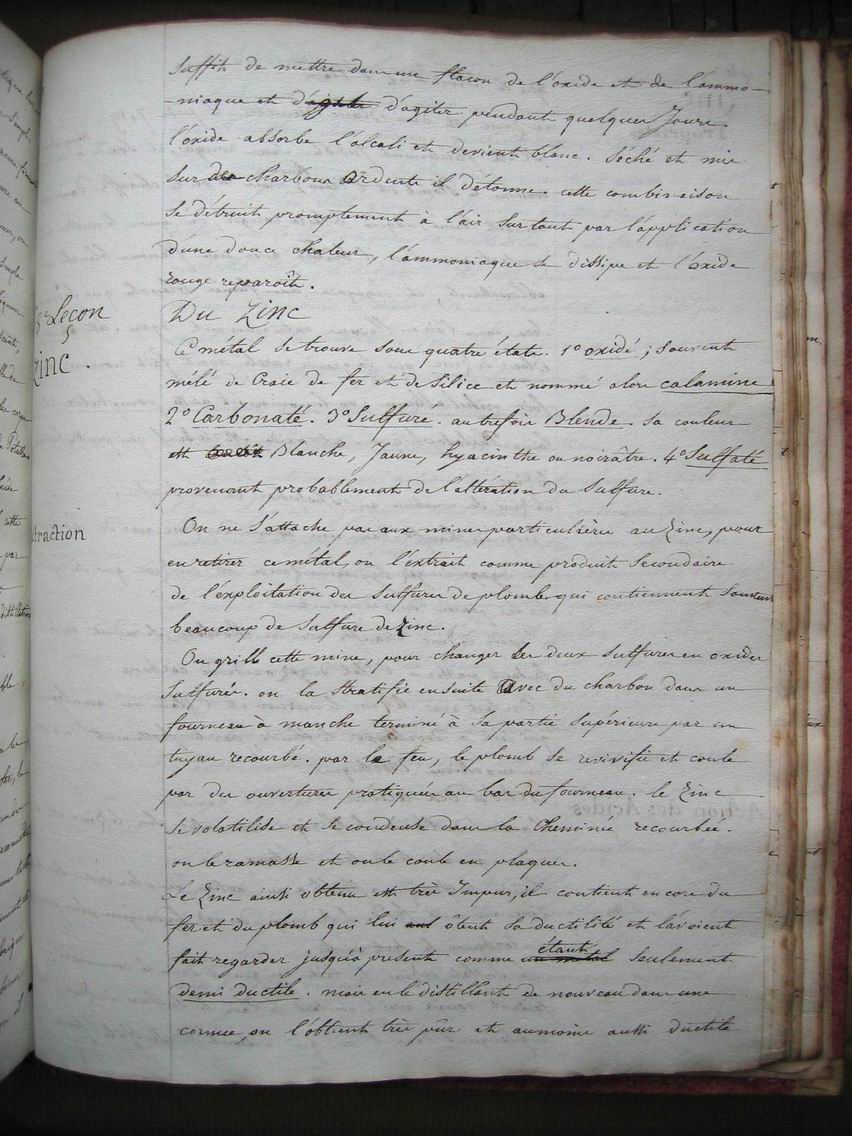 suffit de mettre dans un flacon de l'oxide et de l'ammo-
-niaque et d'agiter pendant quelques Jours
l'oxide absorbe l'alcali et devient blanc. Séché et mis
sur des charbons Ardents il détonne. cette combinaison
se détruit promptement à l'air surtout par l'application
d'une douce chaleur, l'ammoniaque se dissipe et l'oxide
rouge reparoît.
Leçon
Du Zinc
Zinc.
Ce métal se trouve sous quatre états. 1° oxidé ; souvent
mêlé de Craie de fer et de Silice et nommé alors calamine
2° Carbonaté. 3° Sulfuré. autrefois Blende. sa couleur
est Blanche, Jaune, hyacinthe ou noirâtre. 4° Sulfaté
provenant probablement de l'altération du Sulfure.
On ne s'attache pas aux mines particulières au Zinc, pour
extraction
en retirer ce métal, on l'extrait comme produit Secondaire
de l'exploitation des Sulfures de plomb qui contiennent souvent
beaucoup de Sulfure de Zinc.
On grille cette mine, pour changer les deux sulfures en oxides
Sulfurés. on la stratifie ensuite Avec du charbon dans un
fourneau à manche terminé à sa partie supérieure par un
tuyau recourbé. par le feu, le plomb se revivifie et coule
par des ouvertures pratiquées au bas du fourneau. le Zinc
se volatilise et se condense dans la Cheminée recourbée.
on le ramasse et on le coule en plaques.
Le Zinc ainsi obtenu est très Impur, il contient encore du
fer et du plomb qui lui ôtent sa ductilité et l'avoient
fait regarder jusqu'à présent comme étant seulement
demi ductile. mais en le distillant de nouveau dans une
cornue, on l'obtient très pur et au moins aussi ductile